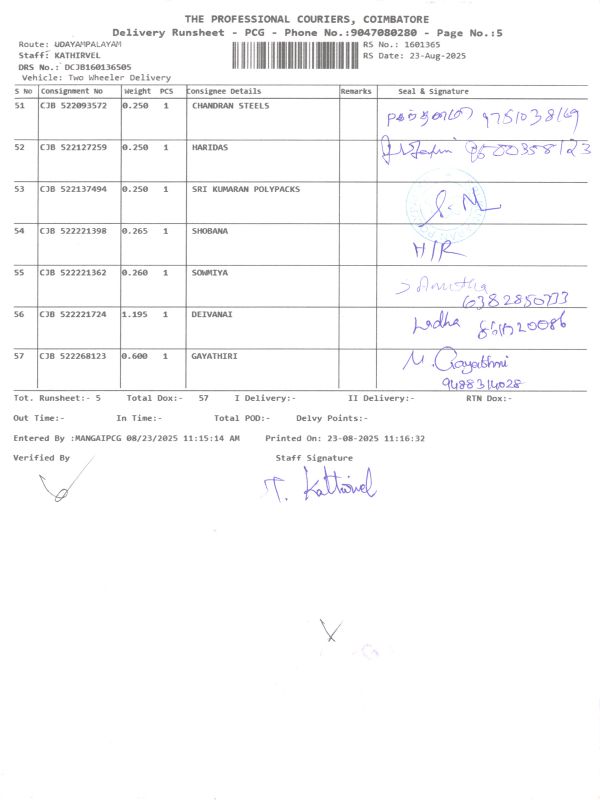 THE PROFESSIONAL COURIERS, COIMBATORE
Delivery Runsheet - PCG - Phone No.:9047080280 - Page No.:5
Route: UDAYAMPALAYAM RS No.: 1601365
Staff: KATHIRVEL RS Date: 23-Aug-2025
DRS No.: DCJB160136505
Vehicle: Two Wheeler Delivery
S No Consignment No Weight PCS Consignee Details Remarks Seal & Signature
51 CJB 522093572 0.250 1 CHANDRAN STEELS
9751038169
52 CJB 522127259 0.250 1 HARIDAS
53 CJB 522137494 0.250 1 SRI KUMARAN POLYPACKS
54 CJB 522221398 0.265 1 SHOBANA
H/R
55 CJB 522221362 0.260 1 SOWMIYA
6382850733
56 CJB 522221724 1.195 1 DEIVANAI
57 CJB 522268123 0.600 1 GAYATHIRI
M. Gayathri
9488314028
Tot. Runsheet:- 5 Total Dox:- 57 I Delivery:- II Delivery:- RTN Dox:-
Out Time:- In Time:- Total POD:- Delvy Points:-
Entered By :MANGAIPCG 08/23/2025 11:15:14 AM Printed On: 23-08-2025 11:16:32
Verified By Staff Signature
T. Kathirvel